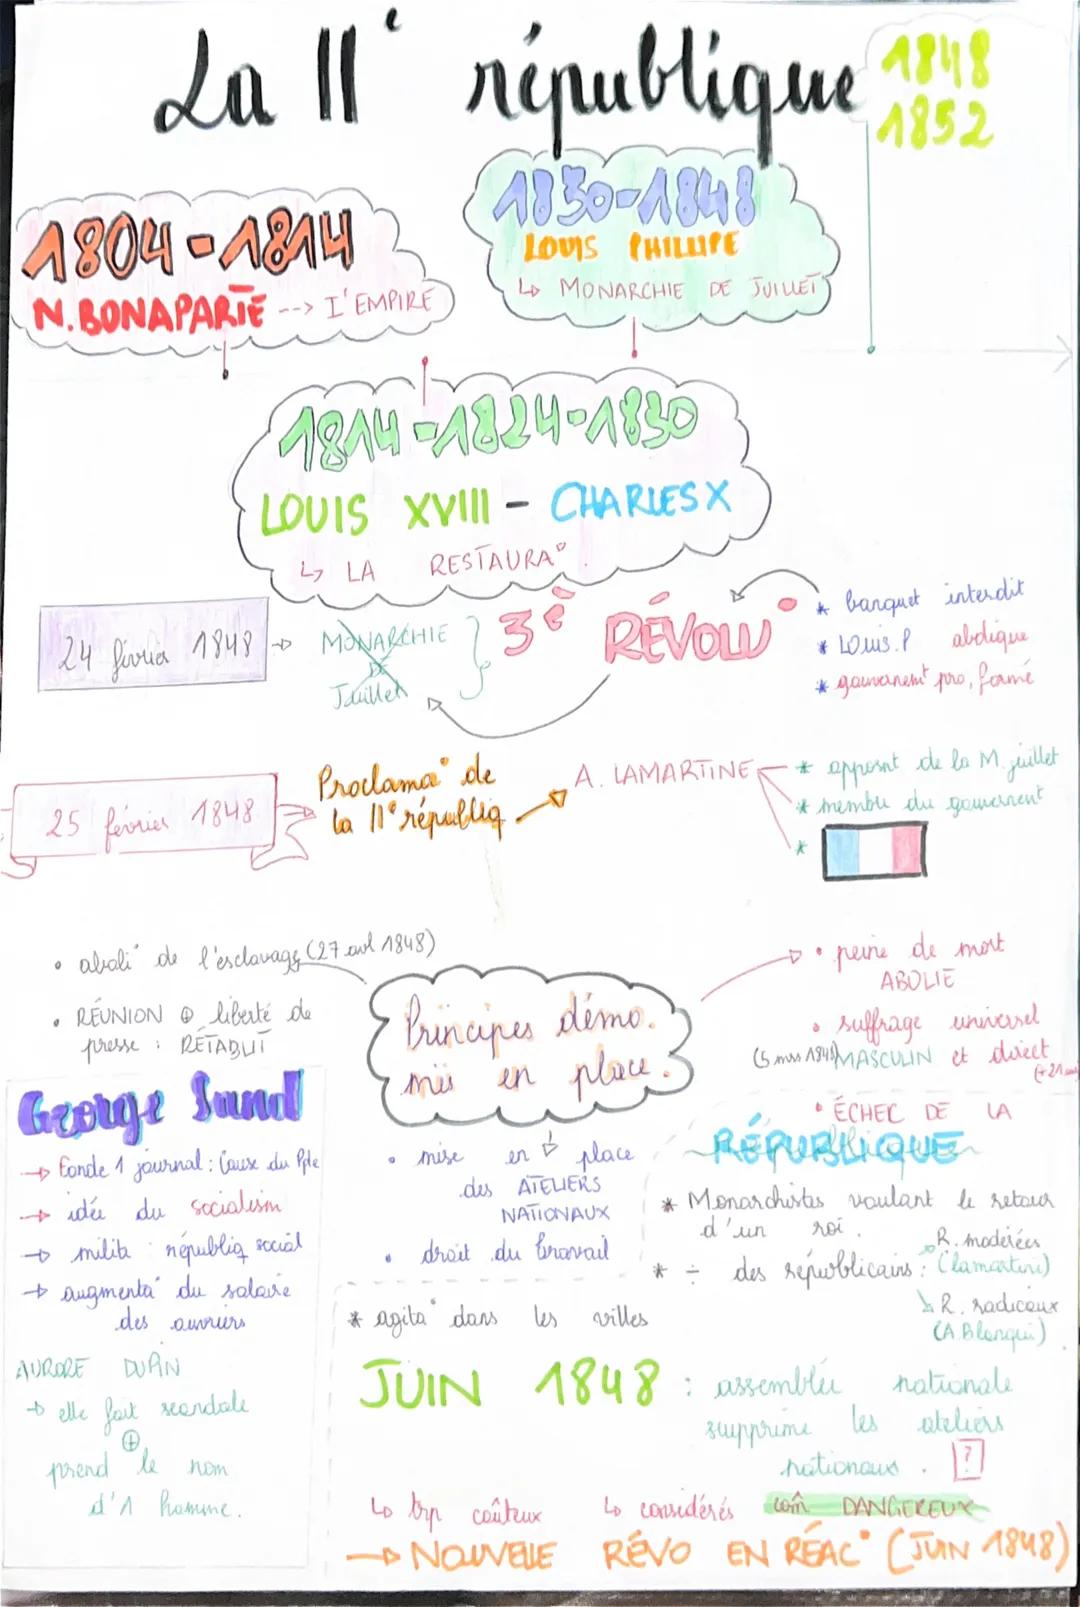 La IIe république
1848
1852
1830-1848
LOUIS PHILLIPE
↳ MONARCHIE DE JUILLET
1804-1814
N. BONAPARTE --> L'EMPIRE
1814-1824-1830
LOUIS XVIII - CHARLES X
↳ LA RESTAURA°
24 février 1848 → MONARCHIE
DE
Juillet
3è RÉVOLU°
* banquet interdit
* Louis.P abdique
* gouvernemt pro, formé
25 février 1848
Proclama° de
la II° républiq
A. LAMARTINE
* opposnt de la M. juillet
* membre du gouvernent
*
• aboli° de l'esclavage (27 avl 1848)
• RÉUNION ⊕ liberté de
presse : RÉTABLIT
Principes démo.
mis en place.
• peine de mort
ABOLIE
• suffrage universel
(5 mrs 1848) MASCULIN et direct
(+21 ans
George Sand
→ Fonde 1 journal : Cause du Pple
→ idée du socialism
→ milita : républiq social
→ augmenta° du salaire
des ouvriers
AURORE DUPIN
→ elle fait scandale
⊕
prend le nom
d'1 homme.
• mise en place
des ATELIERS
NATIONAUX
• droit du travail
• ÉCHEC DE LA
RÉPUBLIQUE
* Monarchistes voulant le retour
d'un roi.
* ÷ des républicains :
R. modérées
(lamartine)
R. radicaux
(A. Blanqui)
* agita° dans les villes
JUIN 1848 : assemblée nationale
supprime les ateliers
nationaux. ?
↳ trp coûteux ↳ considérés com̂ DANGEREUX
→ NOUVELLE RÉVO EN RÉAC° (JUIN 1848)